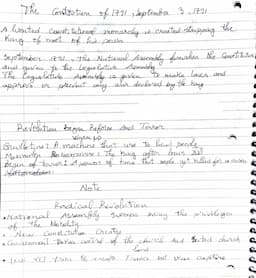 The Constitution of 1791, September 3, 1791
A limited Constitutional monarchy is created stripping the
King of most of his power
September 1791, the National Assembly finishes the Constitution
and gives to the Legislative Assembly
The Legislative Assembly is given to make laws and
approve or prevent any war declared by the king
Revolution Began Reforms and Terror
Guillotine: A machine that use to behead people
the King after Louis XVI
Reign of terror: A period of time that people get killed for a
Note
Radical Revolution
• National Assembly sweeps away the privileges
of the Nobility
• New Constitution Create
• Government takes control of the church and
land
• Louis XVI tries to escape France but was capture